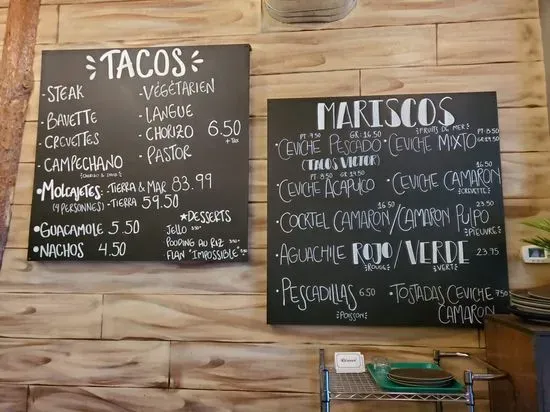 TACOS
-STEAK
-BAVETTE
-CREVETTES
-CAMPECHANO
(CHORIZO & STEAK)
-VÉGÉTARIEN
-LANGUE
-CHORIZO
-PASTOR
6.50
+TAX
•MOLCAJETES: -TIERRA & MAR 83.99
(4 PERSONNES) -TIERRA 59.50
•GUACAMOLE 5.50
•NACHOS 4.50
★DESSERTS
JELLO
POUDING AU RIZ 3.50
FLAN "IMPOSSIBLE"
MARISCOS
FRUITS DE MER
PT: 9.50 GR: 16.50
•CEVICHE PESCADO
(TACOS VICTOR)
PT: 8.50 GR: 14.50
•CEVICHE ACAPULCO
•CEVICHE MIXTO PT: 8.50
•CEVICHE CAMARON 16.50
(CREVETTE)
•COCKTEL CAMARON/CAMARON PULPO
16.50 23.50
PIEUVRE
•AGUACHILE ROJO/VERDE 23.75
ROUGE VERT
•PESCADILLAS 6.50
POISSON
•TOSTADAS CEVICHE 7.50
CAMARON